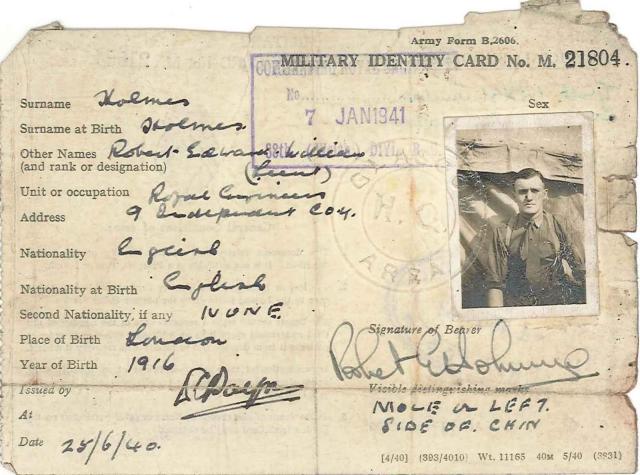 Army Form B,2606.
MILITARY IDENTITY CARD No. M. 21804.
No.
7 JAN 1941
Surname Holmes
Sex
Surname at Birth Holmes
Other Names Robert Edward William
(and rank or designation) (Lieut)
Unit or occupation Royal Engineers
Address 9 Independent Coy.
H.Q.
AREA
Nationality English
Nationality at Birth English
Second Nationality, if any NONE
Place of Birth London
Year of Birth 1916
Signature of Bearer
Issued by
Visible distinguishing marks
At
MOLE ON LEFT.
SIDE OF. CHIN
Date 25/6/40.
[4/40] (393/4010) Wt. 11165 40M 5/40 (3831)